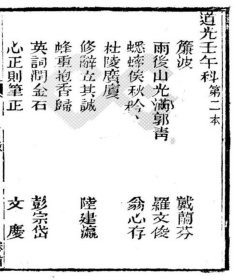 道光壬午科 第二本
簾波 戴蘭芬
雨後山光滿郭青 羅文俊
蟋蟀俟秋吟 翁心存
杜陵廣廈
修辭立其誠 陸建瀛
蜂重抱香歸
英詞潤金石 彭宗岱
心正則筆正 文慶